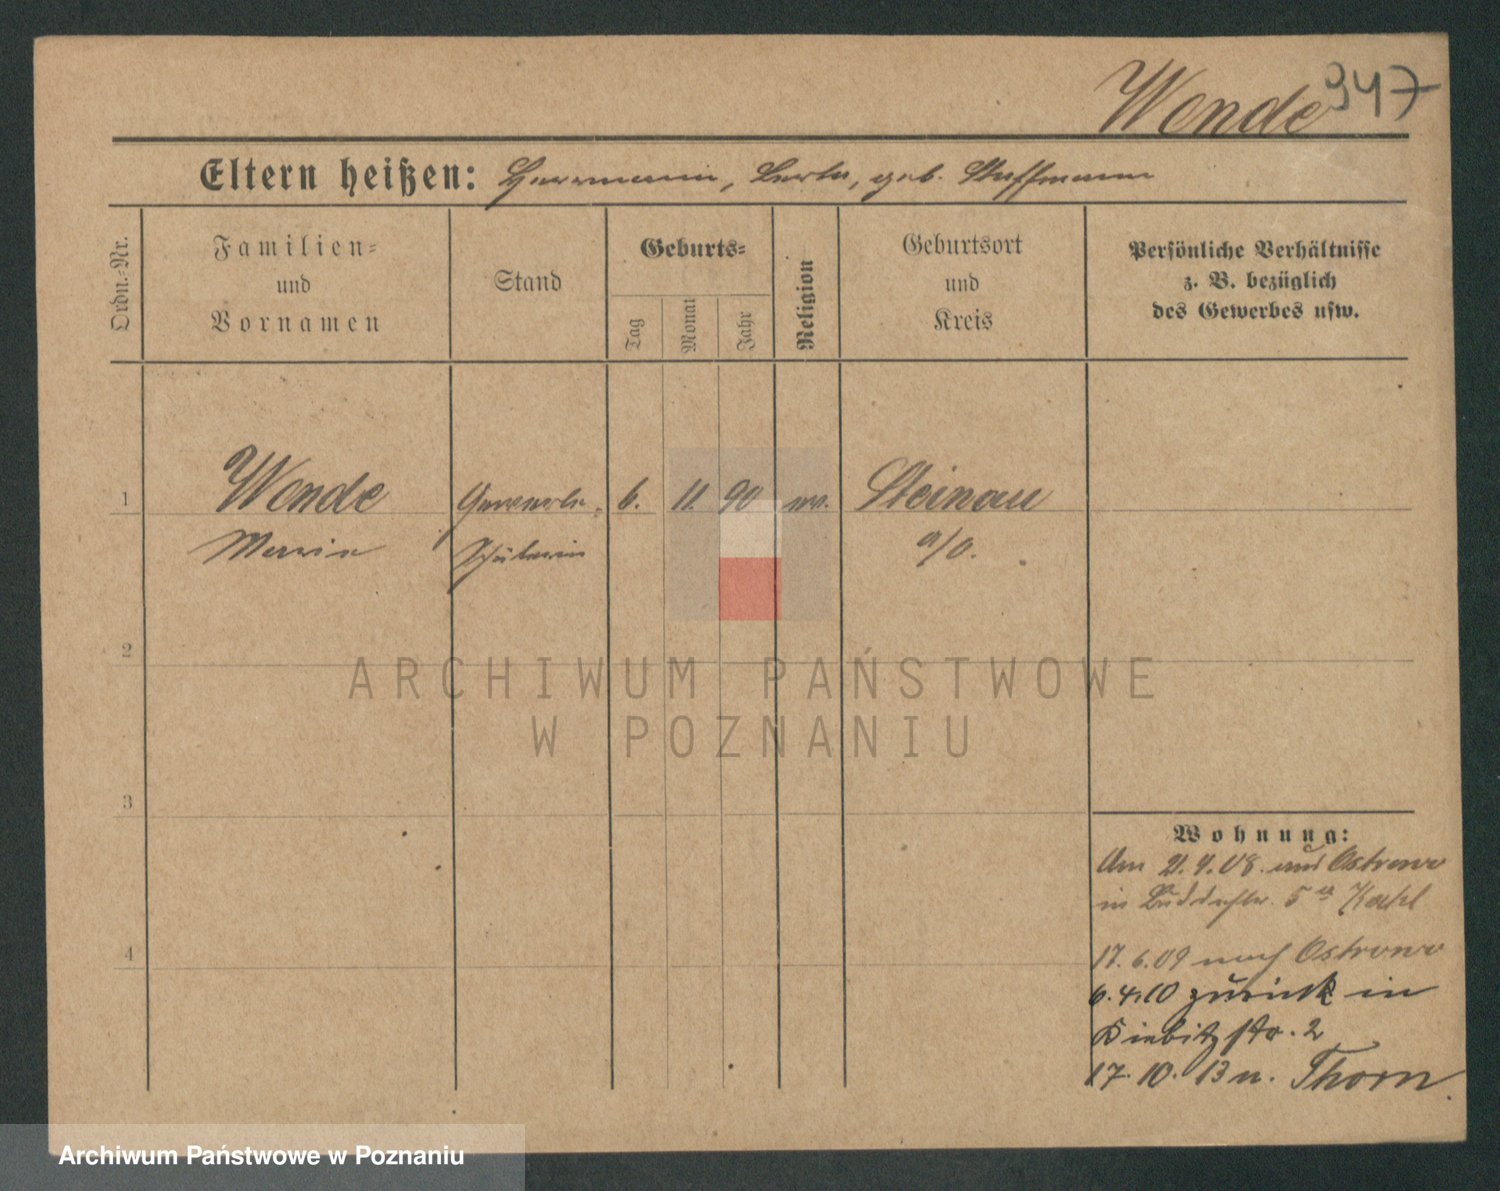 Wende 947
Eltern heißen: Herrmann, Berta, geb. Stuffmann
Ordn.-Nr.
Familien-
und
Vornamen
Stand
Geburts-
Tag
Monat
Jahr
Religion
Geburtsort
und
Kreis
Persönliche Verhältnisse
z. B. bezüglich
des Gewerbes usw.
1 Wende Gewerbe- 6. 11. 90 ev. Steinau
Marie Schülerin a/O.
2
ARCHIWUM PAŃSTWOWE
W POZNANIU
3
Wohnung:
Am 21.4.08. aus Ostrowo
in 5
4
17.6.09 nach Ostrowo
6.4.10 zurück in
Kiebitzstr. 2
17.10.13 n. Thorn.
Archiwum Państwowe w Poznaniu